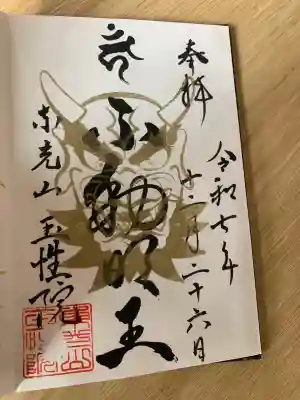 奉拝
令和七年
十二月二十六日
不動明王
東光山
玉性院